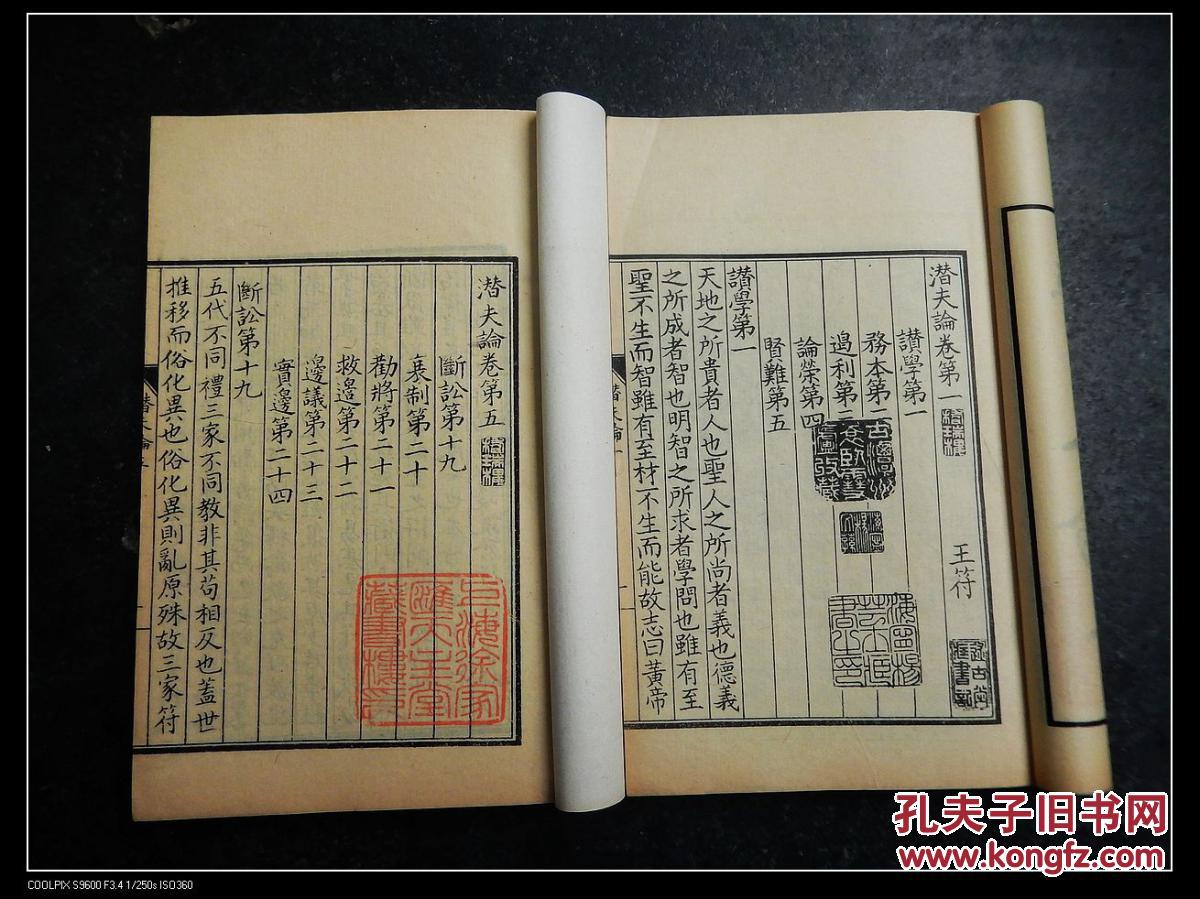 潜夫論卷第一
王符
讃學第一
務本第二
遏利第三
論榮第四
賢難第五
讃學第一
天地之所貴者人也聖人之所尚者義也德義
之所成者智也明智之所求者學問也雖有至
聖不生而智雖有至材不生而能故志曰黄帝
潜夫論卷第五
斷訟第十九
衰制第二十
勸將第二十一
救邉第二十二
邊議第二十三
實邊第二十四
斷訟第十九
五代不同禮三家不同教非其苟相反也蓋世
推移而俗化異也俗化異則亂原殊故三家符
上海徐家
匯天主堂
藏書樓印
孔夫子旧书网
www.kongfz.com
COOLPIX S9600 F3.4 1/250s ISO360